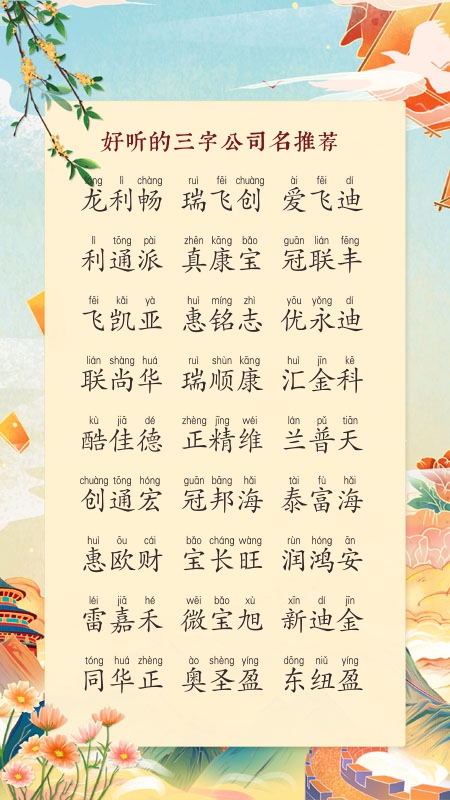 好听的三字公司名推荐
lóng lì chàng ruì fēi chuàng ài fēi dí
龙利畅 瑞飞创 爱飞迪
lì tōng pài zhēn kāng bǎo guān lián fēng
利通派 真康宝 冠联丰
fēi kǎi yà huì míng zhì yōu yǒng dí
飞凯亚 惠铭志 优永迪
lián shàng huá ruì shùn kāng huì jīn kē
联尚华 瑞顺康 汇金科
kù jiā dé zhèng jīng wéi lán pǔ tiān
酷佳德 正精维 兰普天
chuàng tōng hóng guān bāng hǎi tài fù hǎi
创通宏 冠邦海 泰富海
huì ōu cái bǎo cháng wàng rùn hóng ān
惠欧财 宝长旺 润鸿安
léi jiā hé wēi bǎo xù xīn dí jīn
雷嘉禾 微宝旭 新迪金
tóng huá zhèng ào shèng yíng dōng niǔ yíng
同华正 奥圣盈 东纽盈